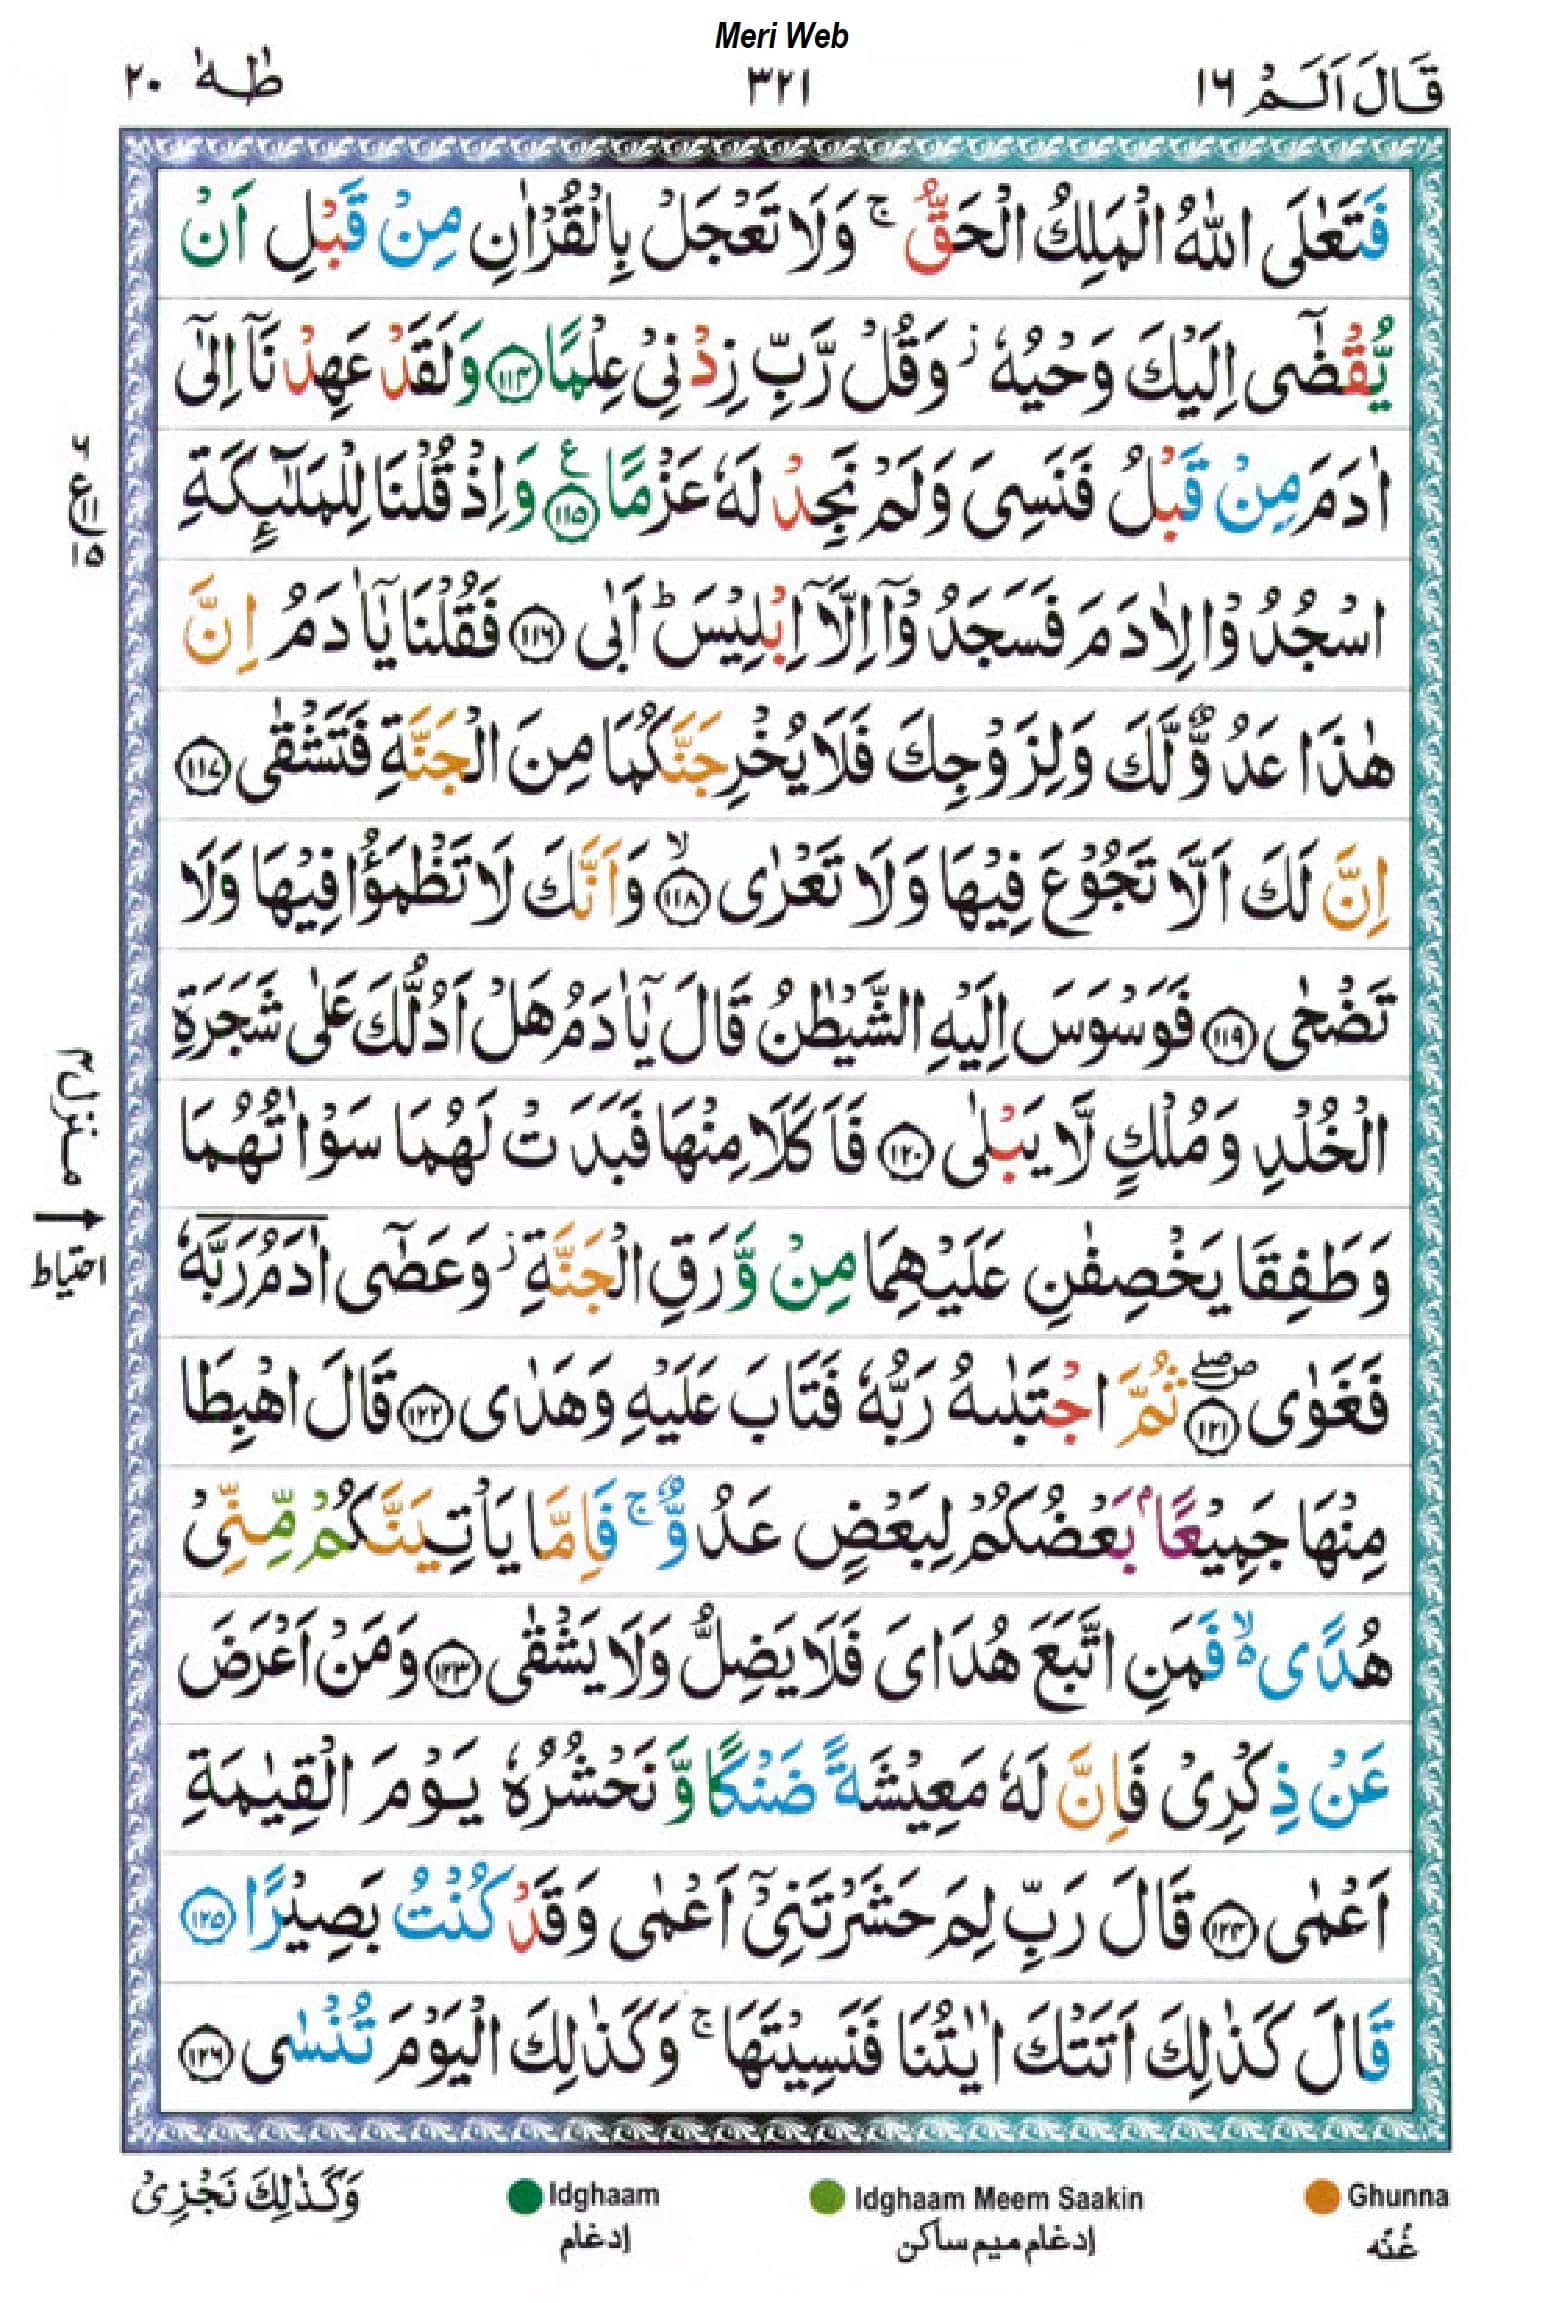 Meri Web
قَالَ اَلَمۡ ١٦
٣٢١
طٰهٰ ٢٠
فَتَعٰلَى اللّٰهُ الۡمَلِكُ الۡحَـقُّ‌ ۚ وَلَا تَعۡجَلۡ بِالۡقُرۡاٰنِ مِنۡ قَبۡلِ اَنۡ
يُّقۡضٰٓى اِلَيۡكَ وَحۡيُهٗ‌ ز وَقُلۡ رَّبِّ زِدۡنِىۡ عِلۡمًا ﴿۱۱۴﴾ وَلَـقَدۡ عَهِدۡنَاۤ اِلٰٓى
اٰدَمَ مِنۡ قَبۡلُ فَنَسِىَ وَلَمۡ نَجِدۡ لَهٗ عَزۡمًا ﴿۱۱۵﴾ ع وَاِذۡ قُلۡنَا لِلۡمَلٰٓٮِٕكَةِ
اسۡجُدُوۡا لِاٰدَمَ فَسَجَدُوۡۤا اِلَّاۤ اِبۡلِيۡسَؕ اَبٰى ﴿۱۱۶﴾ فَقُلۡنَا يٰۤاٰدَمُ اِنَّ
هٰذَا عَدُوٌّ لَّكَ وَلِزَوۡجِكَ فَلَا يُخۡرِجَنَّكُمَا مِنَ الۡجَـنَّةِ فَتَشۡقٰى ﴿۱۱۷﴾
اِنَّ لَـكَ اَلَّا تَجُوۡعَ فِيۡهَا وَلَا تَعۡرٰىۙ ﴿۱۱۸﴾ وَاَنَّكَ لَا تَظۡمَؤُا فِيۡهَا وَلَا
تَضۡحٰى ﴿۱۱۹﴾ فَوَسۡوَسَ اِلَيۡهِ الشَّيۡطٰنُ قَالَ يٰۤاٰدَمُ هَلۡ اَدُلُّكَ عَلٰى شَجَرَةِ
الۡخُلۡدِ وَمُلۡكٍ لَّا يَبۡلٰى ﴿۱۲۰﴾ فَاَكَلَا مِنۡهَا فَبَدَتۡ لَهُمَا سَوۡاٰ تُہُمَا
وَطَفِقَا يَخۡصِفٰنِ عَلَيۡهِمَا مِنۡ وَّرَقِ الۡجَـنَّةِ‌ ز وَعَصٰٓى اٰدَمُ رَبَّهٗ
فَغَوٰى ‌ۖ ﴿۱۲۱﴾ ثُمَّ اجۡتَبٰهُ رَبُّهٗ فَتَابَ عَلَيۡهِ وَهَدٰى ﴿۱۲۲﴾ قَالَ اهۡبِطَا
مِنۡهَا جَمِيۡعًاۢ بَعۡضُكُمۡ لِبَعۡضٍ عَدُوٌّ‌ ۚ فَاِمَّا يَاۡتِيَنَّكُمۡ مِّنِّىۡ
هُدًى ۙ فَمَنِ اتَّبَعَ هُدَاىَ فَلَا يَضِلُّ وَلَا يَشۡقٰى ﴿۱۲۳﴾ وَمَنۡ اَعۡرَضَ
عَنۡ ذِكۡرِىۡ فَاِنَّ لَـهٗ مَعِيۡشَةً ضَنۡكًا وَّنَحۡشُرُهٗ يَوۡمَ الۡقِيٰمَةِ
اَعۡمٰى ﴿۱۲۴﴾ قَالَ رَبِّ لِمَ حَشَرۡتَنِىۡۤ اَعۡمٰى وَقَدۡ كُنۡتُ بَصِيۡرًا ﴿۱۲۵﴾
قَالَ كَذٰلِكَ اَتَـتۡكَ اٰيٰتُنَا فَنَسِيۡتَهَا‌ۚ وَكَذٰلِكَ الۡيَوۡمَ تُنۡسٰى ﴿۱۲۶﴾
٦
ع ١١
١٥
منزل ٤
احتياط
وَكَذٰلِكَ نَجۡزِىۡ
Idghaam
ادغام
Idghaam Meem Saakin
ادغام میم ساکن
Ghunna
غُنّه